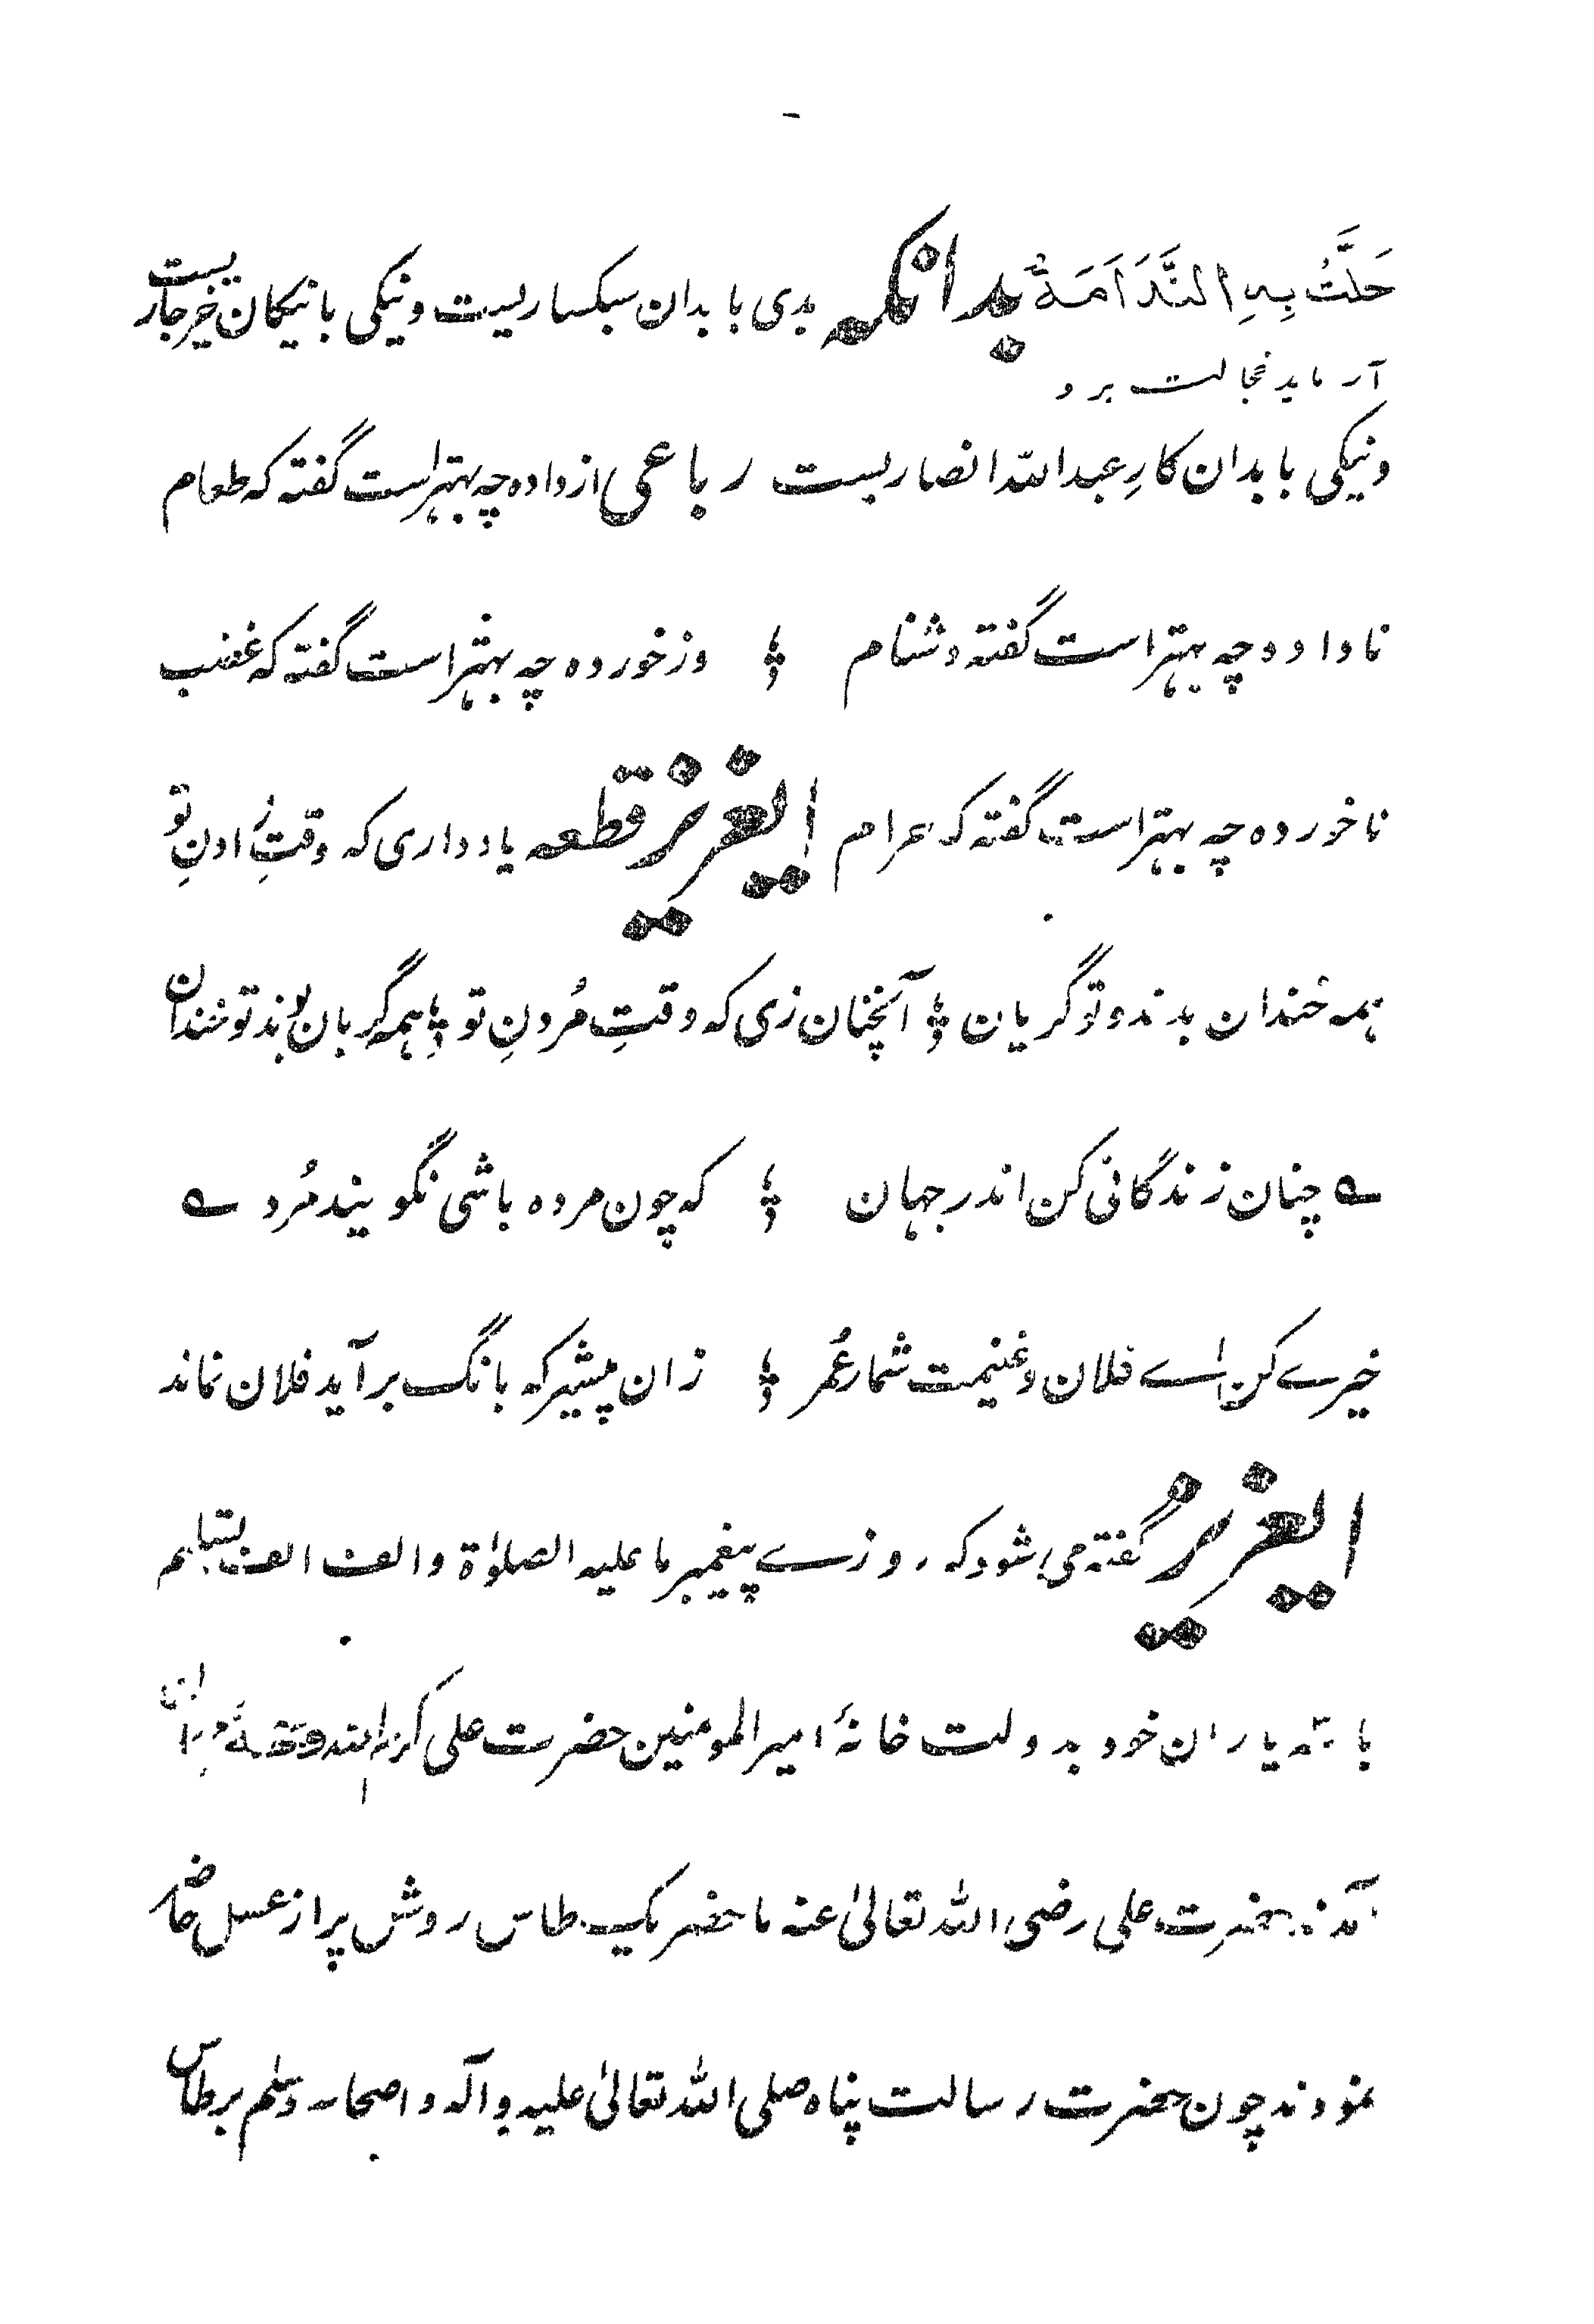 حَلَّتْ بِهِ النَّدَامَةُ بدانکه بدی با بدان سبکساریست و نیکی با نیکان خرخاریست
آر ماید خجالت برو
و نیکی با بدان کارِ عبدالله انصاریست رباعی از داده چه بهتر است گفته که طعام
ناداده چه بهتر است گفته دشنام ؛ وز خورده چه بهتر است گفته که غضب
ناخورده چه بهتر است گفته که حرام ایعزیز قطعه یاد داری که وقتِ زادنِ تو
همه خندان بدند و تو گریان ؛ آنچنان زی که وقتِ مُردنِ تو ؛ همه گریان بوند تو خندان
ے چنان زندگانی کن اندر جهان ؛ که چون مرده باشی نگویند مُرد ے
خیرے کن اے فلان و غنیمت شمار عُمر ؛ زان پیشتر که بانگ برآید فلان نماند
ایعزیز گفته می شود که روزے پیغمبر ما علیه الصلوٰة والف الف تسلیم
با همه یاران خود بدولت خانهٔ امیرالمومنین حضرت علی کرم الله وجهه
آمدند حضرت علی رضی الله تعالیٰ عنه ماحضر یک طاس روشن پر از عسل حاضر
نمودند چون حضرت رسالت پناه صلی الله تعالیٰ علیه و آله و اصحابه وسلم بر طاس